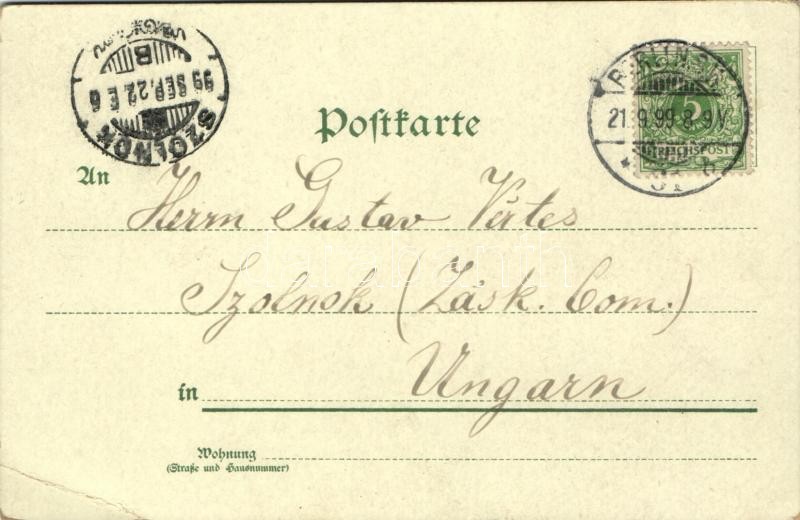 SZOLNOK
99 SEP. 22. E 6
B
BERLIN
21.9.99. 8-9V.
5
REICHSPOST
Postkarte
An
Herrn Gustav Vértes
Szolnok (Zásk. Com.)
in Ungarn
Wohnung
(Straße und Hausnummer)